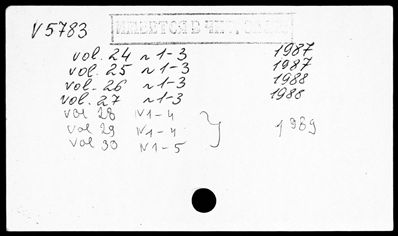 V5783
ИМЕЕТСЯ В ЧИТ. ЗАЛЕ
vol. 24 N 1-3 1987
vol. 25 N 1-3 1987
vol. 26 N 1-3 1988
vol. 27 N 1-3 1988
vol 28 N 1-4
vol 29 N 1-4 } 1989
vol 30 N 1-5